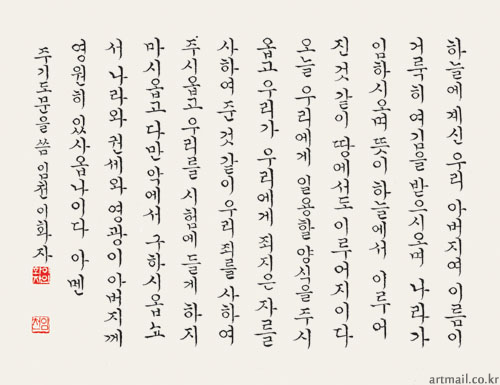 하늘에 계신 우리 아버지여 이름이
거룩히 여김을 받으시오며 나라가
임하시오며 뜻이 하늘에서 이루어
진 것 같이 땅에서도 이루어지이다
오늘 우리에게 일용할 양식을 주시
옵고 우리가 우리에게 죄지은 자를
사하여 준 것 같이 우리 죄를 사하여
주시옵고 우리를 시험에 들게 하지
마시옵고 다만 악에서 구하시옵소
서 나라와 권세와 영광이 아버지께
영원히 있사옵나이다 아멘
주기도문을 씀 임천 이화자
artmail.co.kr